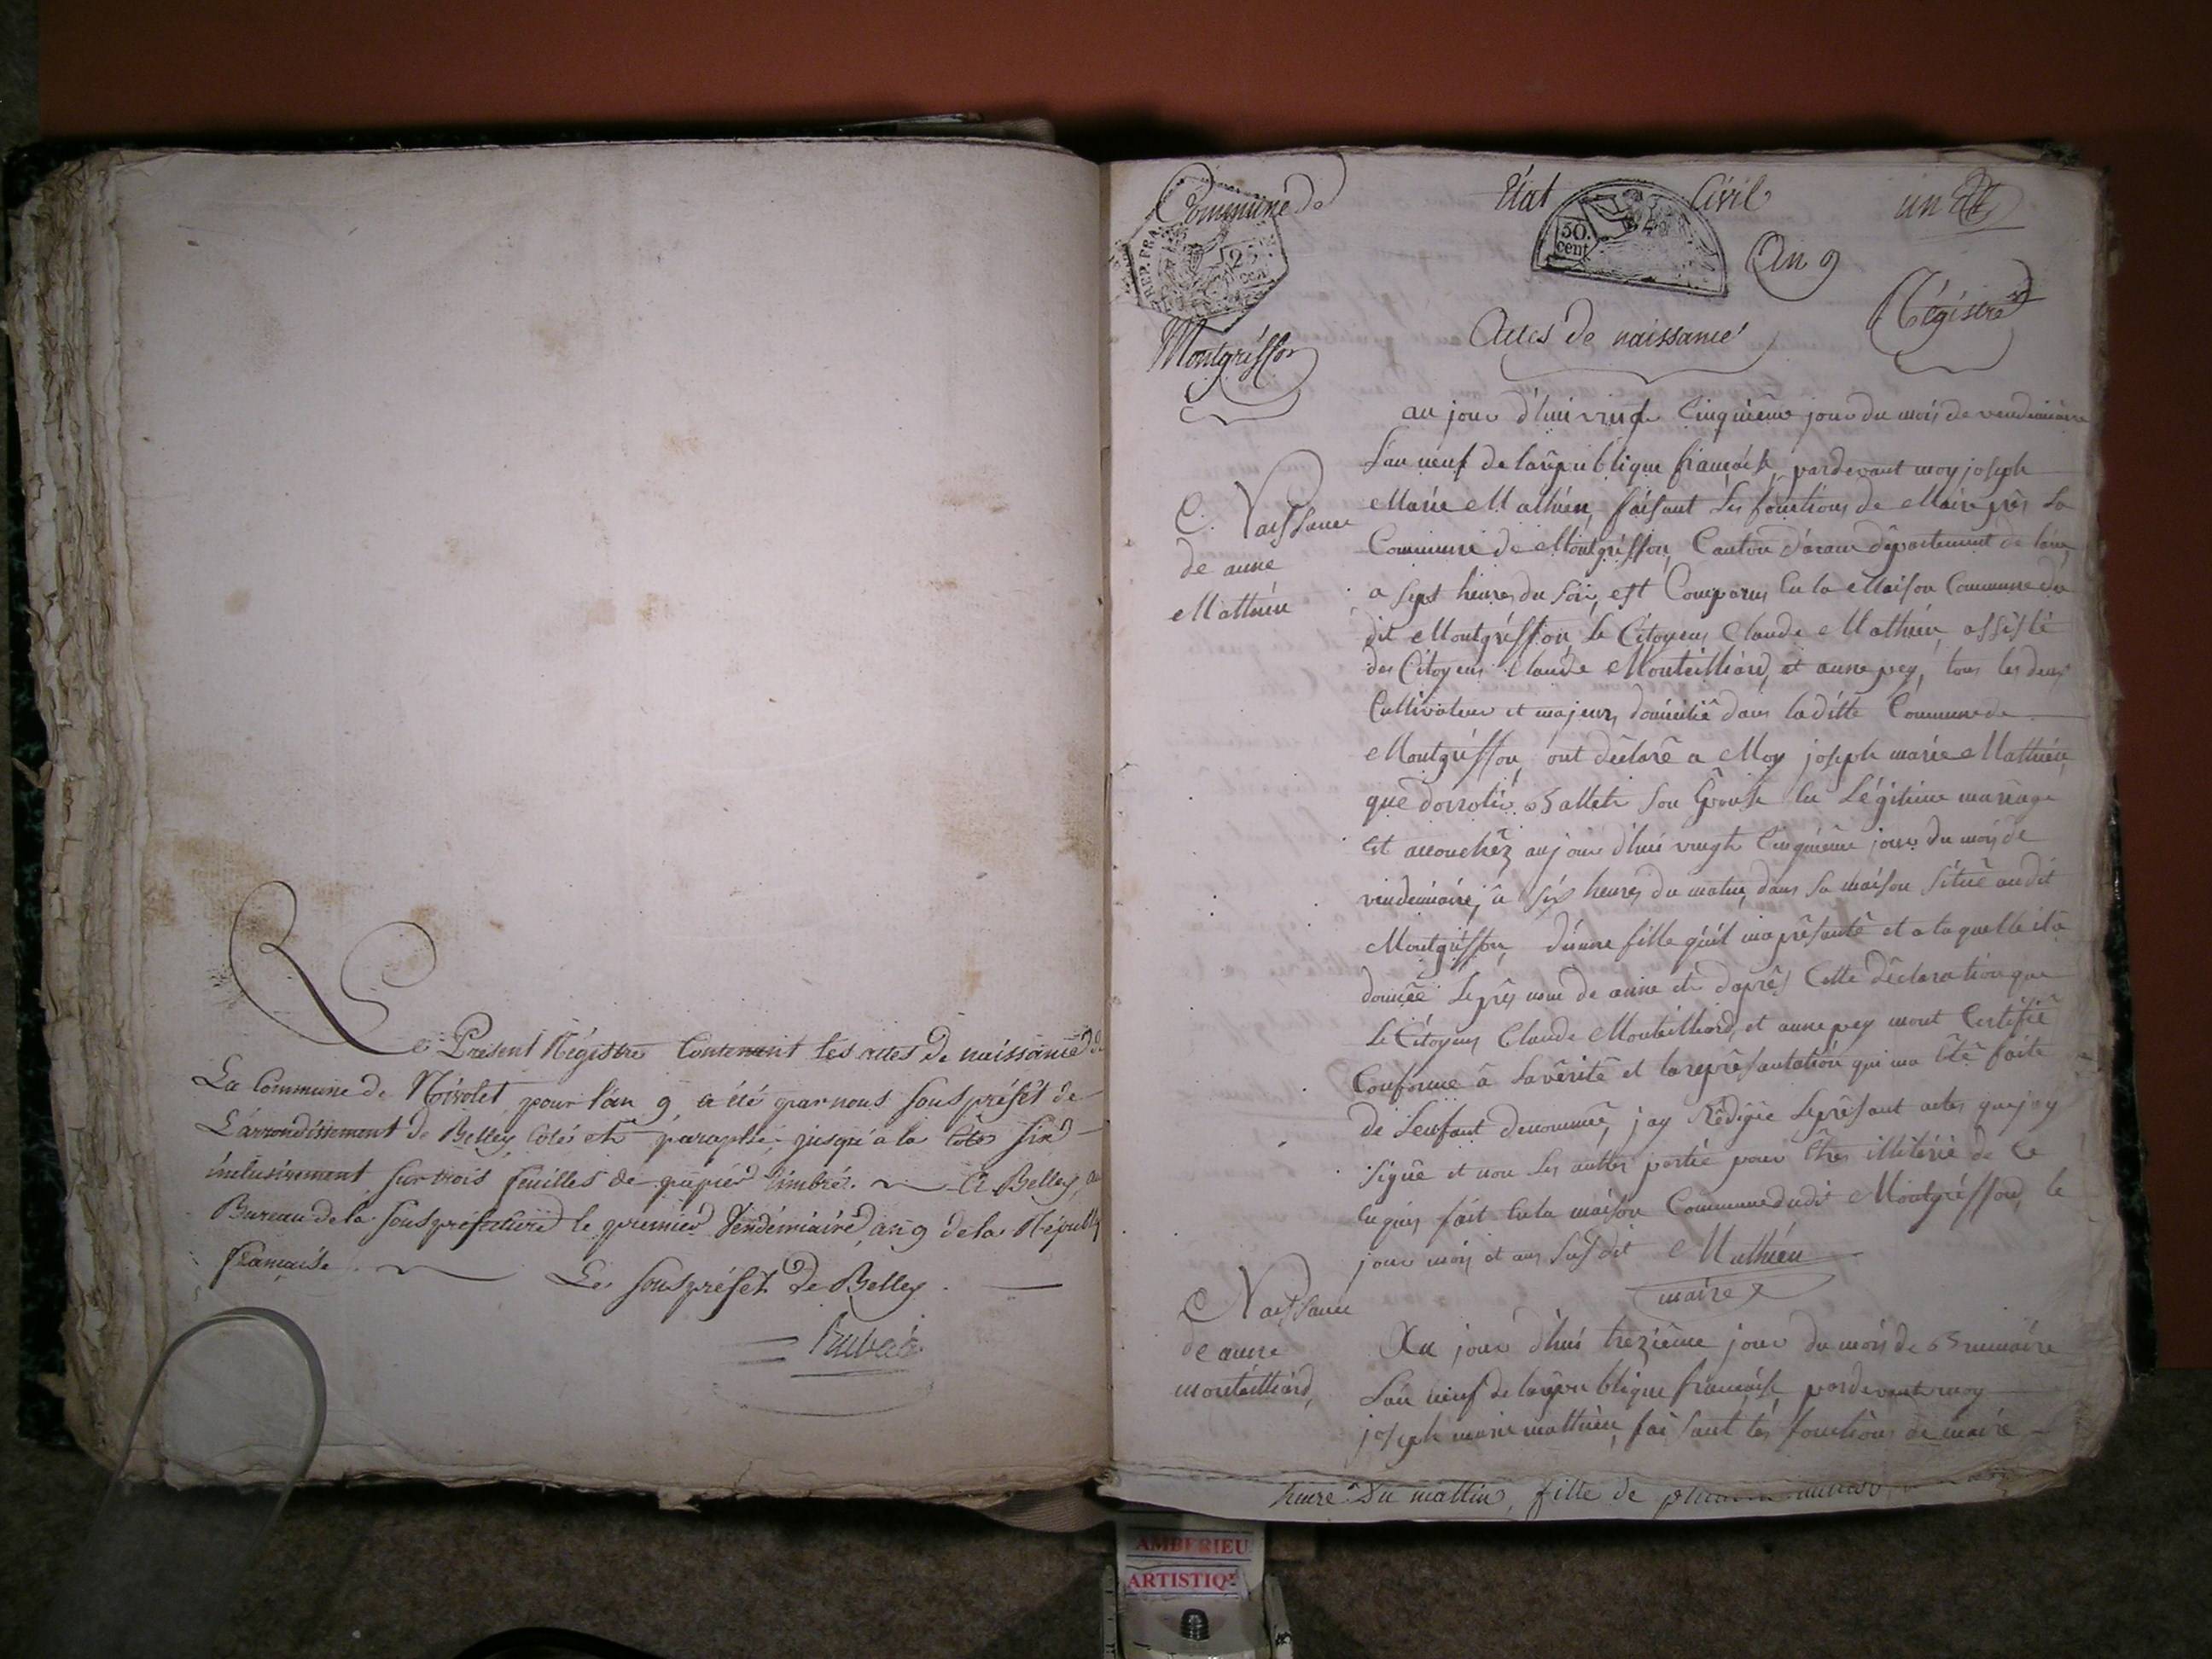 Le Présent Régistre Contenant les actes de naissance de
La Commune de Nivolet pour l'an 9, a été par nous sous préfét de
L'arrondissement de Belley, coté et paraphé, jusqu'a la cote six
inclusivement sur trois feuilles de papier timbré. A Belley, au
Bureau de la sous préfecture le premier Vendémiaire, an 9 de la Républ
française.
Le sous préfet de Belley.
Commune de
REP. FRA.
25
cen
Montgriffon
Etat Civil
50.
cent
An 9
un
Régistre
Actes de naissance
Naissance
de anne
Mathieu
au jour d'hui vingt Cinquiême jour du mois de vendemiaire
L'an neuf de la rêpublique françoise, pardevant moy joseph
Marie Mathieu, faisant Les fonctions de Maire près La
Commune de Montgriffon, Canton d'aranc dêpartement de lain,
a sept heures du soir, est Comparus En la Maison Commune du
dit Montgriffon, Le Citoyens Claude Mathieu, assisté
des Citoyens Claude Monteilliard, et anne pey, tous les deux
Cultivateur et majeurs, domicilié dans laditte Commune de
Montgriffon, ont dêclarê a Moy joseph marie Mathieu,
que dorrotié son Epouse En Légitime mariage
Est accouchêz aujour d'hui vingt Cinquième jour du mois de
vendemiaire, â six heures du matin, dans sa maison située audit
Montgriffon, d'unne fille qu'il ma prêsantê et a laquelle il a
donnêe Le prês nom de anne et d'après Cette dêclaration que
Le Citoyens Claude Monteilliard, et anne pey mont Certifiê
Conforme â la vêritê et la reprêsantation qui ma êtê faite
de Lenfant denommêe, jay Rêdigée Le prêsant actes que jay
Signê et non Les auttes partié pour Êtres illitérié de Ce
Enquis fait En la maison Commune dudit Montgriffond, le
jour mois et ans susdit Mathieu
maire
Naissance
de anne
monteilliard,
Au jour d'hui trezième jour du mois de Brumaire
L'an neuf de la rêpublique française, pardevant moy
joseph marie mathieu, faisant les fonctions de maire
heure Du mattin, fille de
AMBERIEU
ARTISTIQ